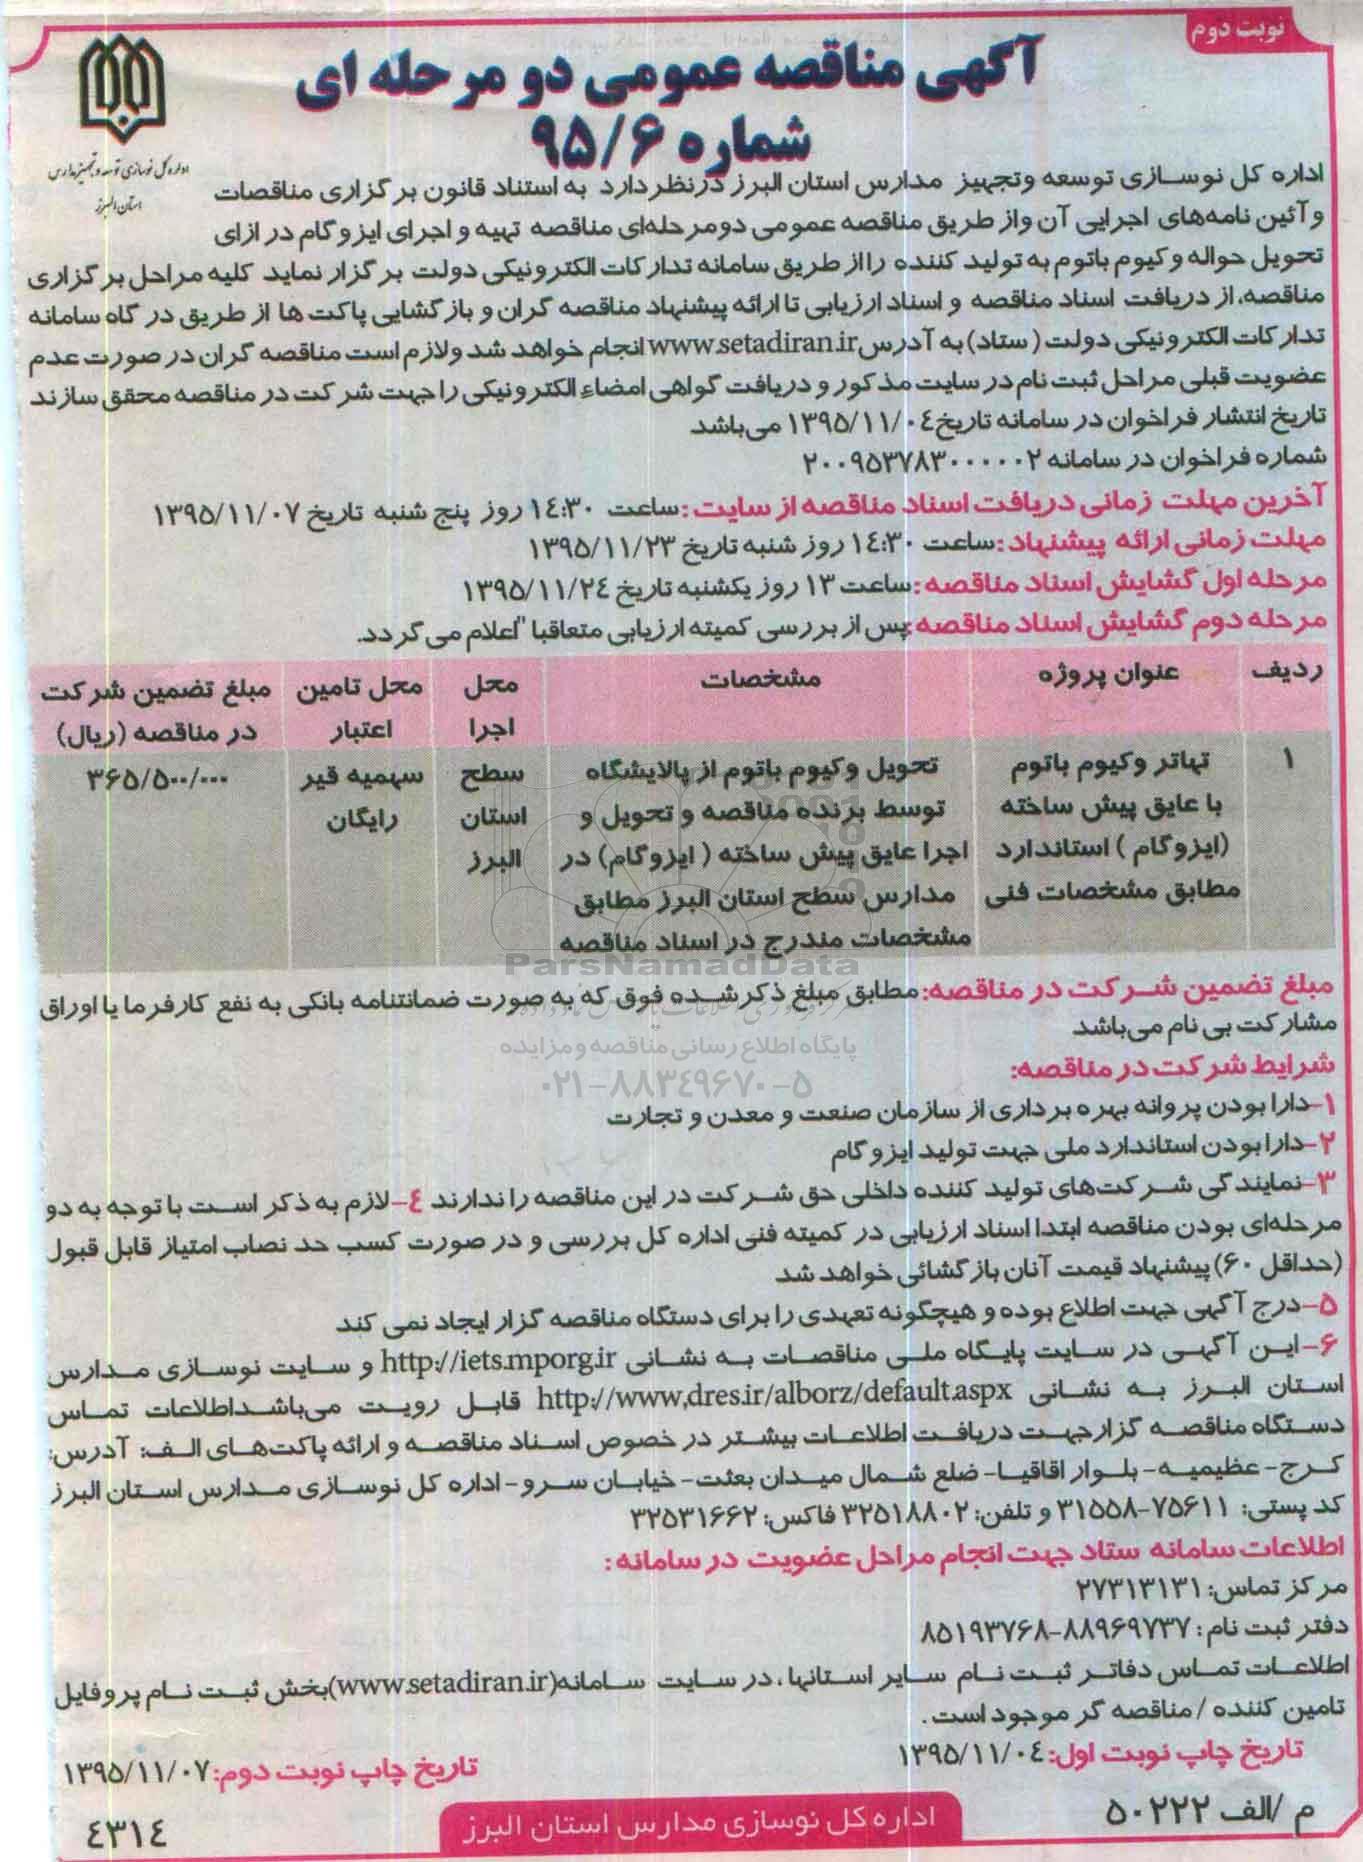 نوبت دوم
آگهی مناقصه عمومی دو مرحله ای
شماره ۹۵/۶
اداره کل نوسازی توسعه و تجهیز مدارس
استان البرز
اداره کل نوسازی توسعه وتجهیز مدارس استان البرز درنظردارد به استناد قانون برگزاری مناقصات
و آئین نامه‌های اجرایی آن واز طریق مناقصه عمومی دومرحله‌ای مناقصه تهیه و اجرای ایزوگام در ازای
تحویل حواله وکیوم باتوم به تولید کننده رااز طریق سامانه تدارکات الکترونیکی دولت برگزار نماید کلیه مراحل برگزاری
مناقصه، از دریافت اسناد مناقصه و اسناد ارزیابی تا ارائه پیشنهاد مناقصه گران و بازگشایی پاکت ها از طریق درگاه سامانه
تدارکات الکترونیکی دولت (ستاد) به آدرس www.setadiran.ir انجام خواهد شد ولازم است مناقصه گران در صورت عدم
عضویت قبلی مراحل ثبت نام در سایت مذکور و دریافت گواهی امضاء الکترونیکی را جهت شرکت در مناقصه محقق سازند
تاریخ انتشار فراخوان در سامانه تاریخ ۱۳۹۵/۱۱/۰۴ می‌باشد
شماره فراخوان در سامانه ۲۰۰۹۵۳۷۸۳۰۰۰۰۰۰۲
آخرین مهلت زمانی دریافت اسناد مناقصه از سایت: ساعت ۱۴:۳۰ روز پنج شنبه تاریخ ۱۳۹۵/۱۱/۰۷
مهلت زمانی ارائه پیشنهاد: ساعت ۱۴:۳۰ روز شنبه تاریخ ۱۳۹۵/۱۱/۲۳
مرحله اول گشایش اسناد مناقصه: ساعت ۱۳ روز یکشنبه تاریخ ۱۳۹۵/۱۱/۲۴
مرحله دوم گشایش اسناد مناقصه: پس از بررسی کمیته ارزیابی متعاقبا "اعلام می گردد.
ردیف عنوان پروژه مشخصات محل اجرا محل تامین اعتبار مبلغ تضمین شرکت در مناقصه (ریال)
۱ تهاتر وکیوم باتوم با عایق پیش ساخته (ایزوگام) استاندارد مطابق مشخصات فنی
تحویل وکیوم باتوم از پالایشگاه
توسط برنده مناقصه و تحویل و
اجرا عایق پیش ساخته (ایزوگام) در
مدارس سطح استان البرز مطابق
مشخصات مندرج در اسناد مناقصه
سطح استان البرز
سهمیه قیر رایگان
۳۶۵/۵۰۰/۰۰۰
ParsNamadData
پایگاه اطلاع رسانی مناقصه و مزایده
۰۲۱-۸۸۳۴۹۶۷۰-۵
مبلغ تضمین شرکت در مناقصه: مطابق مبلغ ذکر شده فوق که به صورت ضمانتنامه بانکی به نفع کارفرما یا اوراق
مشارکت بی نام می‌باشد
شرایط شرکت در مناقصه:
۱-دارا بودن پروانه بهره برداری از سازمان صنعت و معدن و تجارت
۲-دارا بودن استاندارد ملی جهت تولید ایزوگام
۳-نمایندگی شرکت‌های تولید کننده داخلی حق شرکت در این مناقصه را ندارند ۴-لازم به ذکر است با توجه به دو
مرحله‌ای بودن مناقصه ابتدا اسناد ارزیابی در کمیته فنی اداره کل بررسی و در صورت کسب حد نصاب امتیاز قابل قبول
(حداقل ۶۰) پیشنهاد قیمت آنان بازگشائی خواهد شد
۵-درج آگهی جهت اطلاع بوده و هیچگونه تعهدی را برای دستگاه مناقصه گزار ایجاد نمی کند
۶-این آگهی در سایت پایگاه ملی مناقصات به نشانی http://iets.mporg.ir و سایت نوسازی مدارس
استان البرز به نشانی http://www,dres.ir/alborz/default.aspx قابل رویت می‌باشداطلاعات تماس
دستگاه مناقصه گزارجهت دریافت اطلاعات بیشتر در خصوص اسناد مناقصه و ارائه پاکت‌های الف: آدرس:
کرج- عظیمیه- بلوار اقاقیا- ضلع شمال میدان بعثت- خیابان سرو- اداره کل نوسازی مدارس استان البرز
کد پستی: ۷۵۶۱۱-۳۱۵۵۸ و تلفن: ۳۲۵۱۸۸۰۲ فاکس: ۳۲۵۳۱۶۶۲
اطلاعات سامانه ستاد جهت انجام مراحل عضویت در سامانه:
مرکز تماس: ۲۷۳۱۳۱۳۱
دفتر ثبت نام: ۸۸۹۶۹۷۳۷-۸۵۱۹۳۷۶۸
اطلاعات تماس دفاتر ثبت نام سایر استانها، در سایت سامانه(www.setadiran.ir)بخش ثبت نام پروفایل
تامین کننده / مناقصه گر موجود است.
تاریخ چاپ نوبت اول: ۱۳۹۵/۱۱/۰۴
تاریخ چاپ نوبت دوم: ۱۳۹۵/۱۱/۰۷
م /الف ۵۰۲۲۲
اداره کل نوسازی مدارس استان البرز
۴۳۱۴